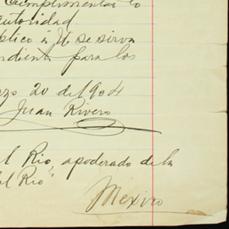 Cumplimentar lo
autoridad
plico á U. se sirva
ndiente para los
rzo 20 de 1904
Juan Rivero
l Rio, apoderado de la
el Rio"
Mexico